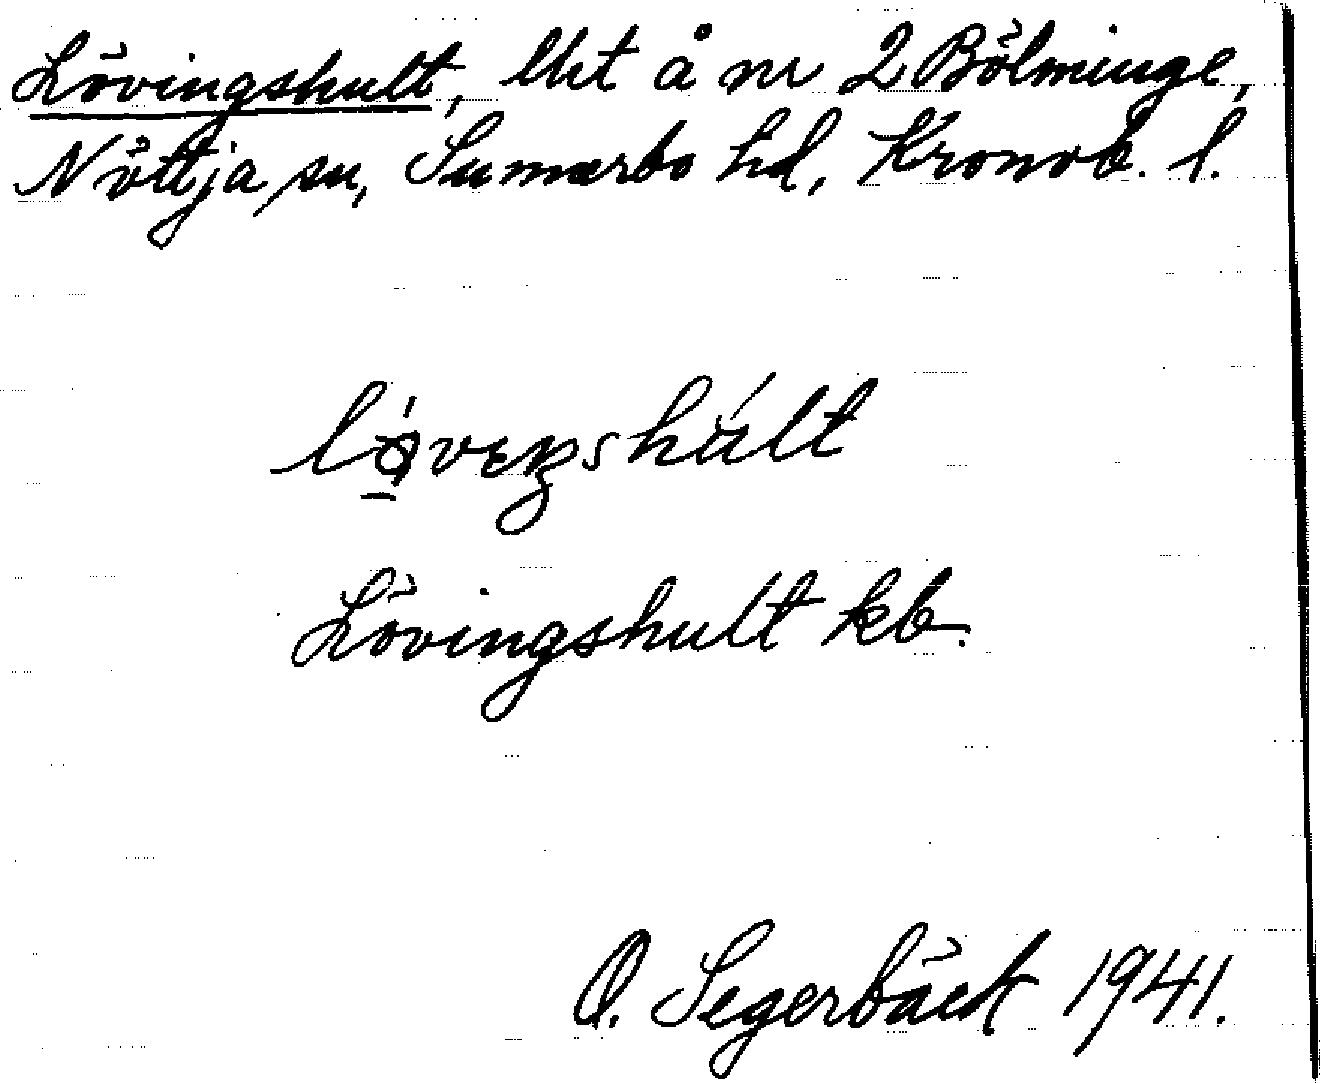 Lövingshult, lht å nr 2 Bölminge,
Nöttja sn, Sunnerbo hd, Kronob. l.
Lövingshult kb.
O. Segerbäck 1941.